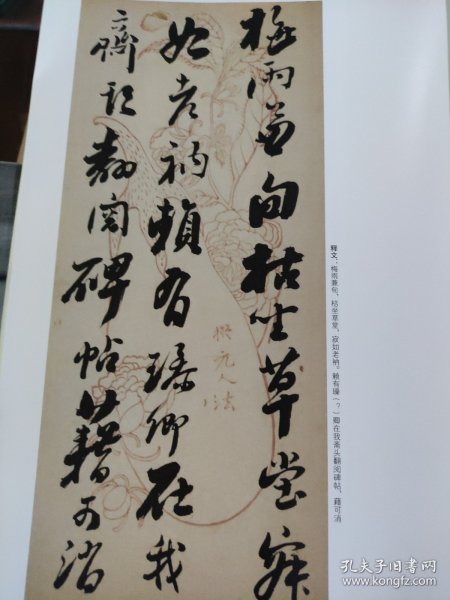 梅雨兼旬枯坐草堂寂
如老衲頼有瑧卿在我
齋頭翻閱碑帖藉可消
擬元人法
释文：梅雨兼旬，枯坐草堂，寂如老衲。赖有瑧（？）卿在我斋头翻阅碑帖，藉可消
孔夫子旧书网
www.kongfz.com